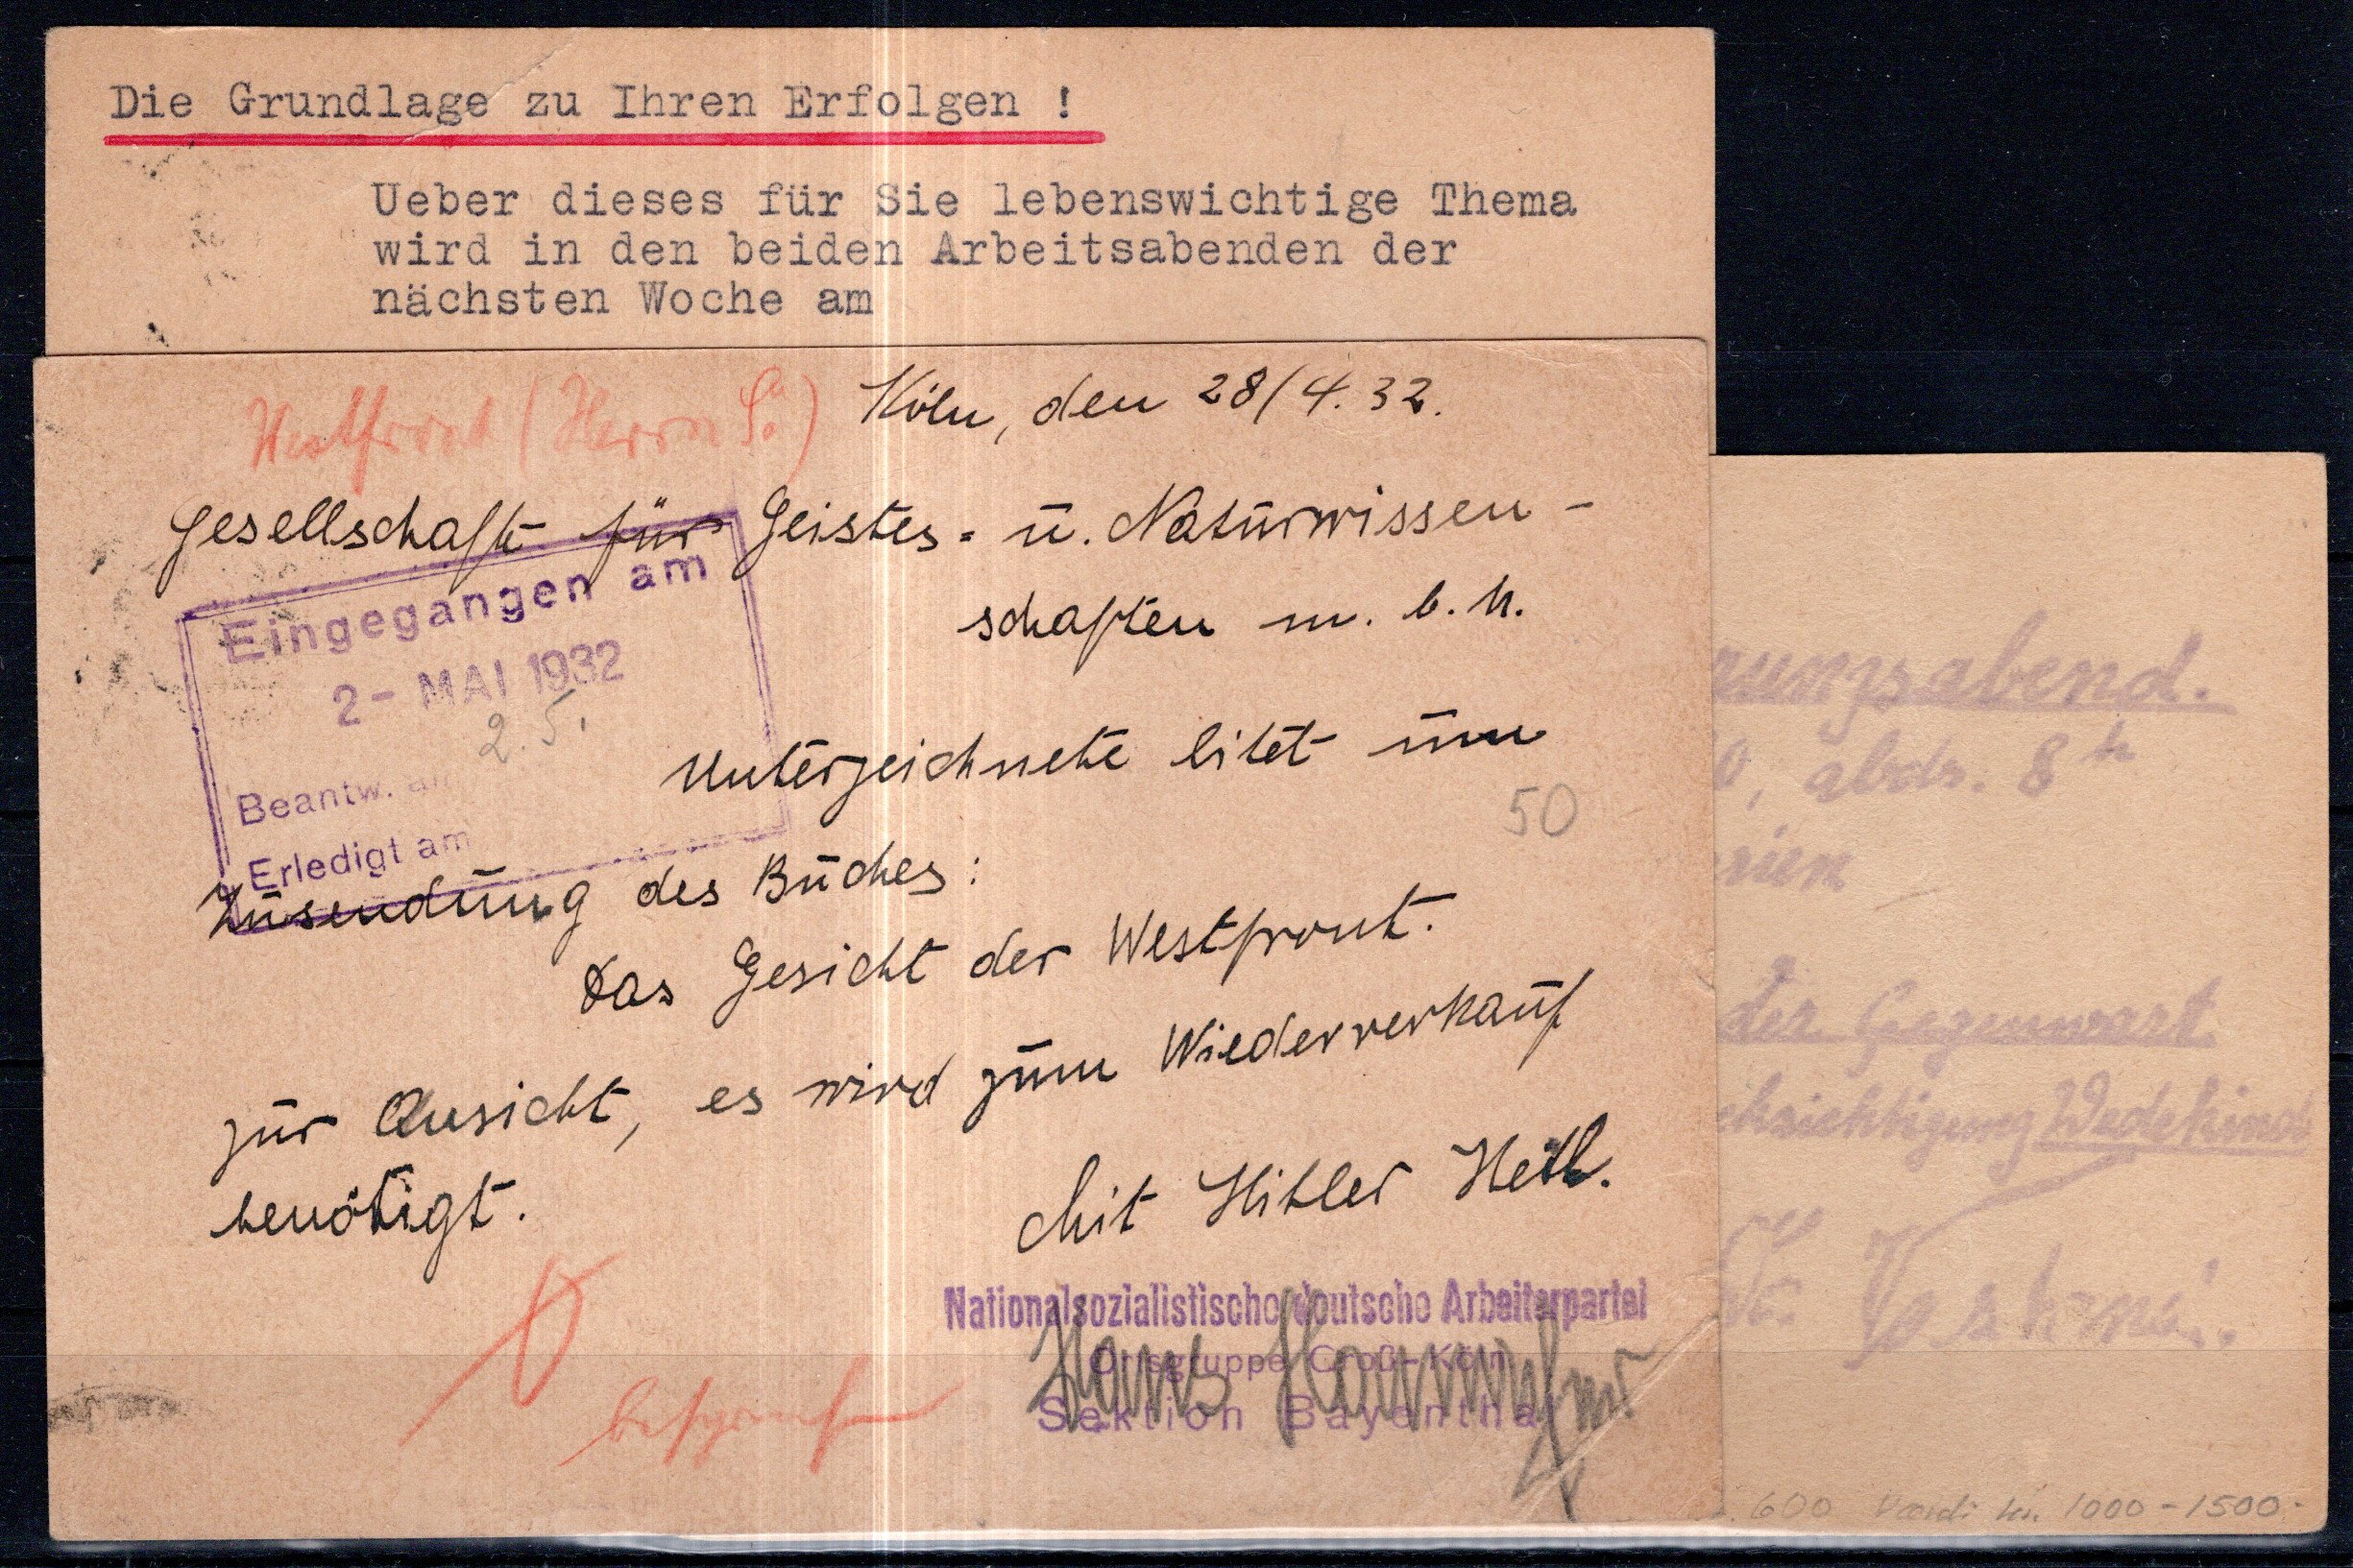 Die Grundlage zu Ihren Erfolgen !
Ueber dieses für Sie lebenswichtige Thema
wird in den beiden Arbeitsabenden der
nächsten Woche am
Westfront (Herrn
Köln, den 28/4. 32.
Gesellschaft für Geistes- u. Naturwissen-
schaften m. b. H.
Eingegangen am
2- MAI 1932
2.5.
Beantw. am
Erledigt am
Unterzeichnete bitet um
50
Zusendung des Buches:
Das Gesicht der Westfront.
zur Ansicht, es wird zum Wiederverkauf
benötigt.
Mit Hitler Heil.
Nationalsozialistische deutsche Arbeiterpartei
Ortsgruppe Groß-Köln
Sektion Bayenthal
Hans
rungsabend.
0, abds. 8 h
rien
der Gegenwart
cksichtigung Wedekind
600
1000-1500.-